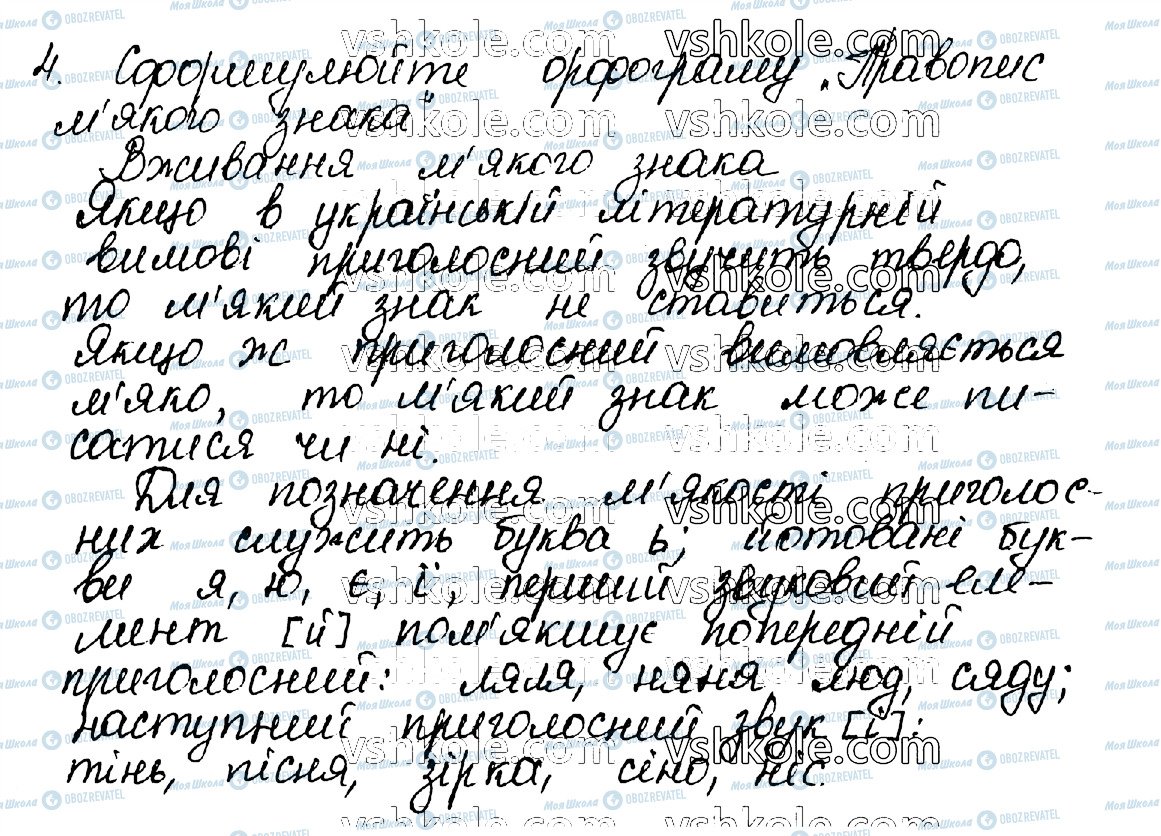 4. Сформулюйте орфограму „Правопис
м'якого знака"
Вживання м'якого знака
Якщо в українській літературній
вимові приголосний звучить твердо,
то м'який знак не ставиться.
Якщо ж приголосний вимовляється
м'яко, то м'який знак може пи-
сатися чи ні.
Для позначення м'якості приголос-
них служить буква ь; йотовані бук-
ви я, ю, є, ї; перший звуковий еле-
мент [й] пом'якшує попередній
приголосний: ляля, няня, люд, сяду;
наступний приголосний звук [і]:
тінь, пісня, зірка, сіно, ніс.